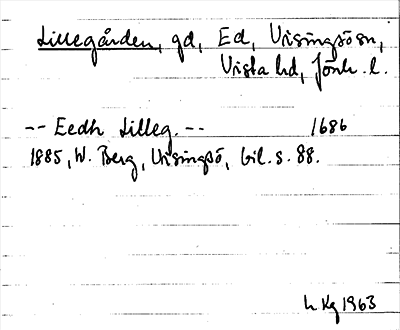 Lillegården, gd, Ed, Visingsö sn,
Vista hd, Jönk. l.
-- Eedh Lilleg. -- 1686
1885, W. Berg, Visingsö, bil. s. 88.
L. Kg 1963